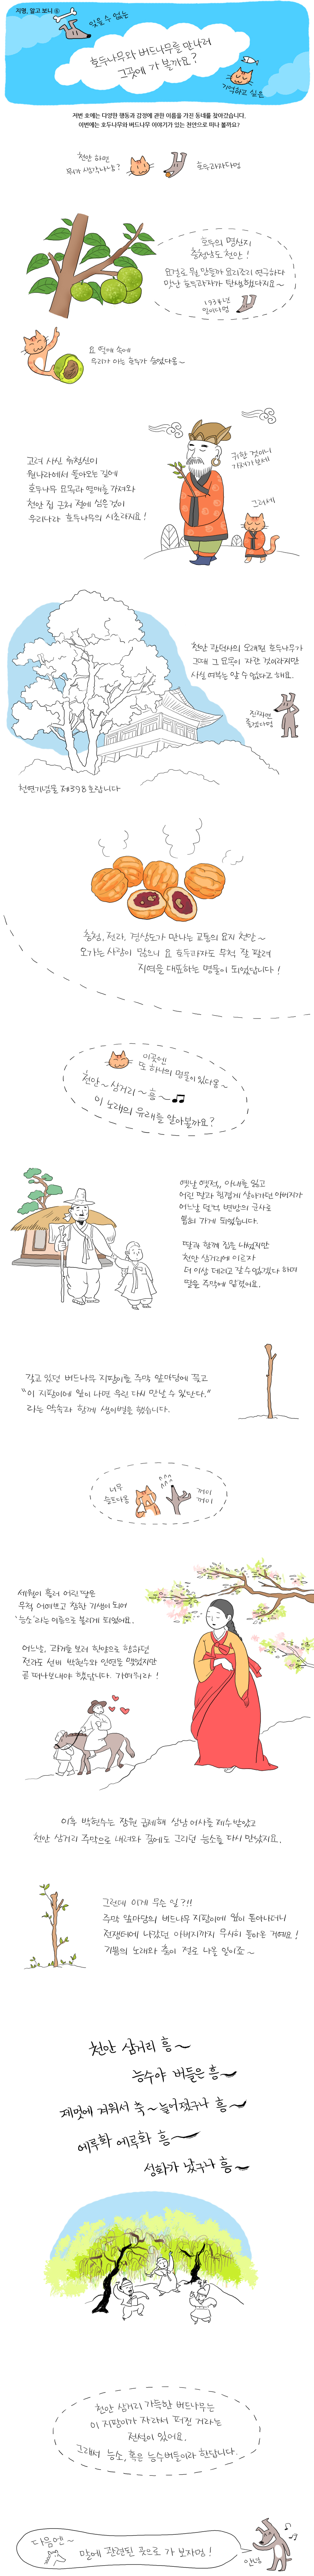 지명, 알고 보니 ⑥
잊을 수 없는
호두나무와 버드나무를 만나러
그곳에 가 볼까요?
기억하고 싶은
저번 호에는 다양한 행동과 감정에 관한 이름을 가진 동네를 찾아갔습니다.
이번에는 호두나무와 버드나무 이야기가 있는 천안으로 떠나 볼까요?
천안 하면
뭐가 생각나냥?
호두과자다멍
호두의 명산지
충청남도 천안!
요걸로 뭘 만들까 요리조리 연구하다
맛난 호두과자가 탄생했다지요~
1934년
일이다멍
요 열매 속에
우리가 아는 호두가 숨었다옹~
고려 사신 유청신이
원나라에서 돌아오는 길에
호두나무 묘목과 열매를 가져와
천안 집 근처 절에 심은 것이
우리나라 호두나무의 시초라지요!
귀한 것이니
가져가 보세
그러세
천안 광덕사의 오래된 호두나무가
그때 그 묘목이 자란 것이라지만
사실 여부는 알 수 없다고 해요.
진짜면
좋겠다멍
천연기념물 제398호랍니다
충청, 전라, 경상도가 만나는 교통의 요지 천안~
오가는 사람이 많으니 요 호두과자도 무척 잘 팔려
지역을 대표하는 명물이 되었답니다!
이곳엔
또 하나의 명물이 있다옹~
천안~삼거리~흥~
이 노래의 유래를 알아볼까요?
옛날 옛적, 아내를 잃고
어린 딸과 힘겹게 살아가던 아버지가
어느 날 덜컥 변방의 군사로
뽑혀 가게 되었습니다.
딸과 함께 집을 나섰지만
천안 삼거리에 이르자
더 이상 데리고 갈 수 없겠다 하며
딸을 주막에 맡겼어요.
갖고 있던 버드나무 지팡이를 주막 앞마당에 꽂고
“이 지팡이에 잎이 나면 우린 다시 만날 수 있단다.”
라는 약속과 함께 생이별을 했습니다.
너무
슬프다옹
께이
께이
세월이 흘러 어린 딸은
무척 어여쁘고 참한 기생이 되어
‘능소’라는 이름으로 불리게 되었어요.
어느 날, 과거를 보러 한양으로 향하던
전라도 선비 박현수와 인연을 맺었지만
곧 떠나보내야 했답니다. 가여워라!
이후 박현수는 장원 급제해 삼남 어사를 제수받았고
천안 삼거리 주막으로 내려와 꿈에도 그리던 능소를 다시 만났지요.
그런데 이게 무슨 일?!!
주막 앞마당의 버드나무 지팡이에 잎이 돋아나더니
전쟁터에 나갔던 아버지까지 무사히 돌아온 거예요!
기쁨의 노래와 춤이 절로 나올 일이죠~
천안 삼거리 흥~
능수야 버들은 흥~
제멋에 겨워서 축~늘어졌구나 흥~
에루화 에루화 흥~
성화가 났구나 흥~
천안 삼거리 가득한 버드나무는
이 지팡이가 자라서 퍼진 거라는
전설이 있어요.
그래서 능소, 혹은 능수버들이라 한답니다.
다음엔~
말에 관련된 곳으로 가 보자멍!
안녕